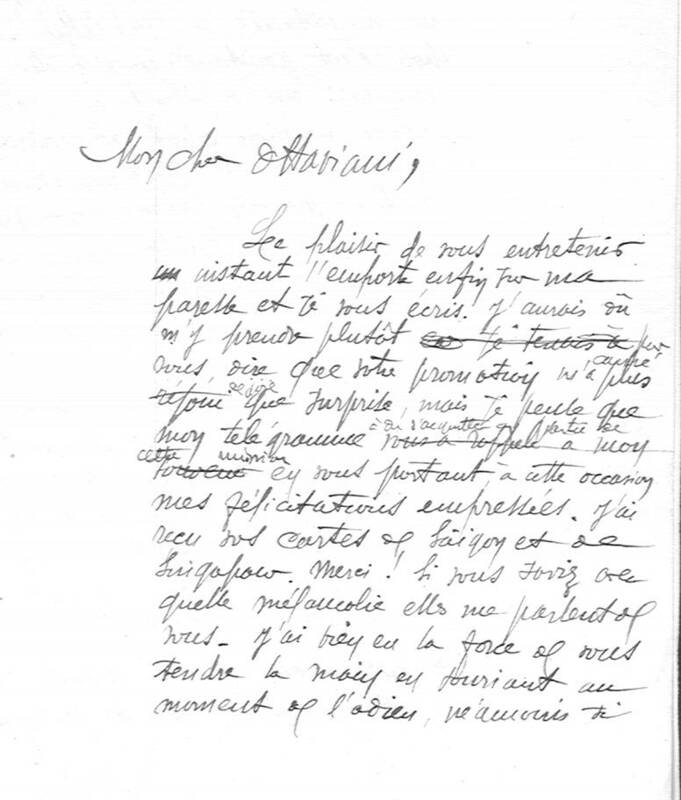 Mon cher Ottaviani,
Le plaisir de vous entretenir
un instant l'emporte enfin sur ma
paresse et je vous écris. J'aurais dû
m'y prendre plutôt car je tenais à pour
vous dire que votre promotion m'a plus causé
réjoui de joie que surprise, mais je pense que
mon télégramme à dû s'acquitter en partie de vous a rappelé à mon
cette mission en vous portant, à cette occasion
mes félicitations empressées. J'ai
reçu vos cartes de Saïgon et de
Singapour. Merci ! Si vous saviez avec
quelle mélancolie elles me parlent de
vous. J'ai bien eu la force de vous
tendre la main en souriant au
moment de l'adieu, néamoins si